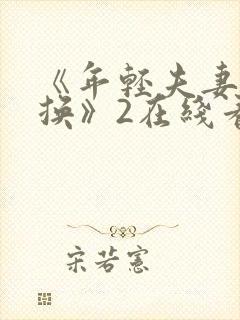 《年轻夫妻
换》2在线看
宋若宪